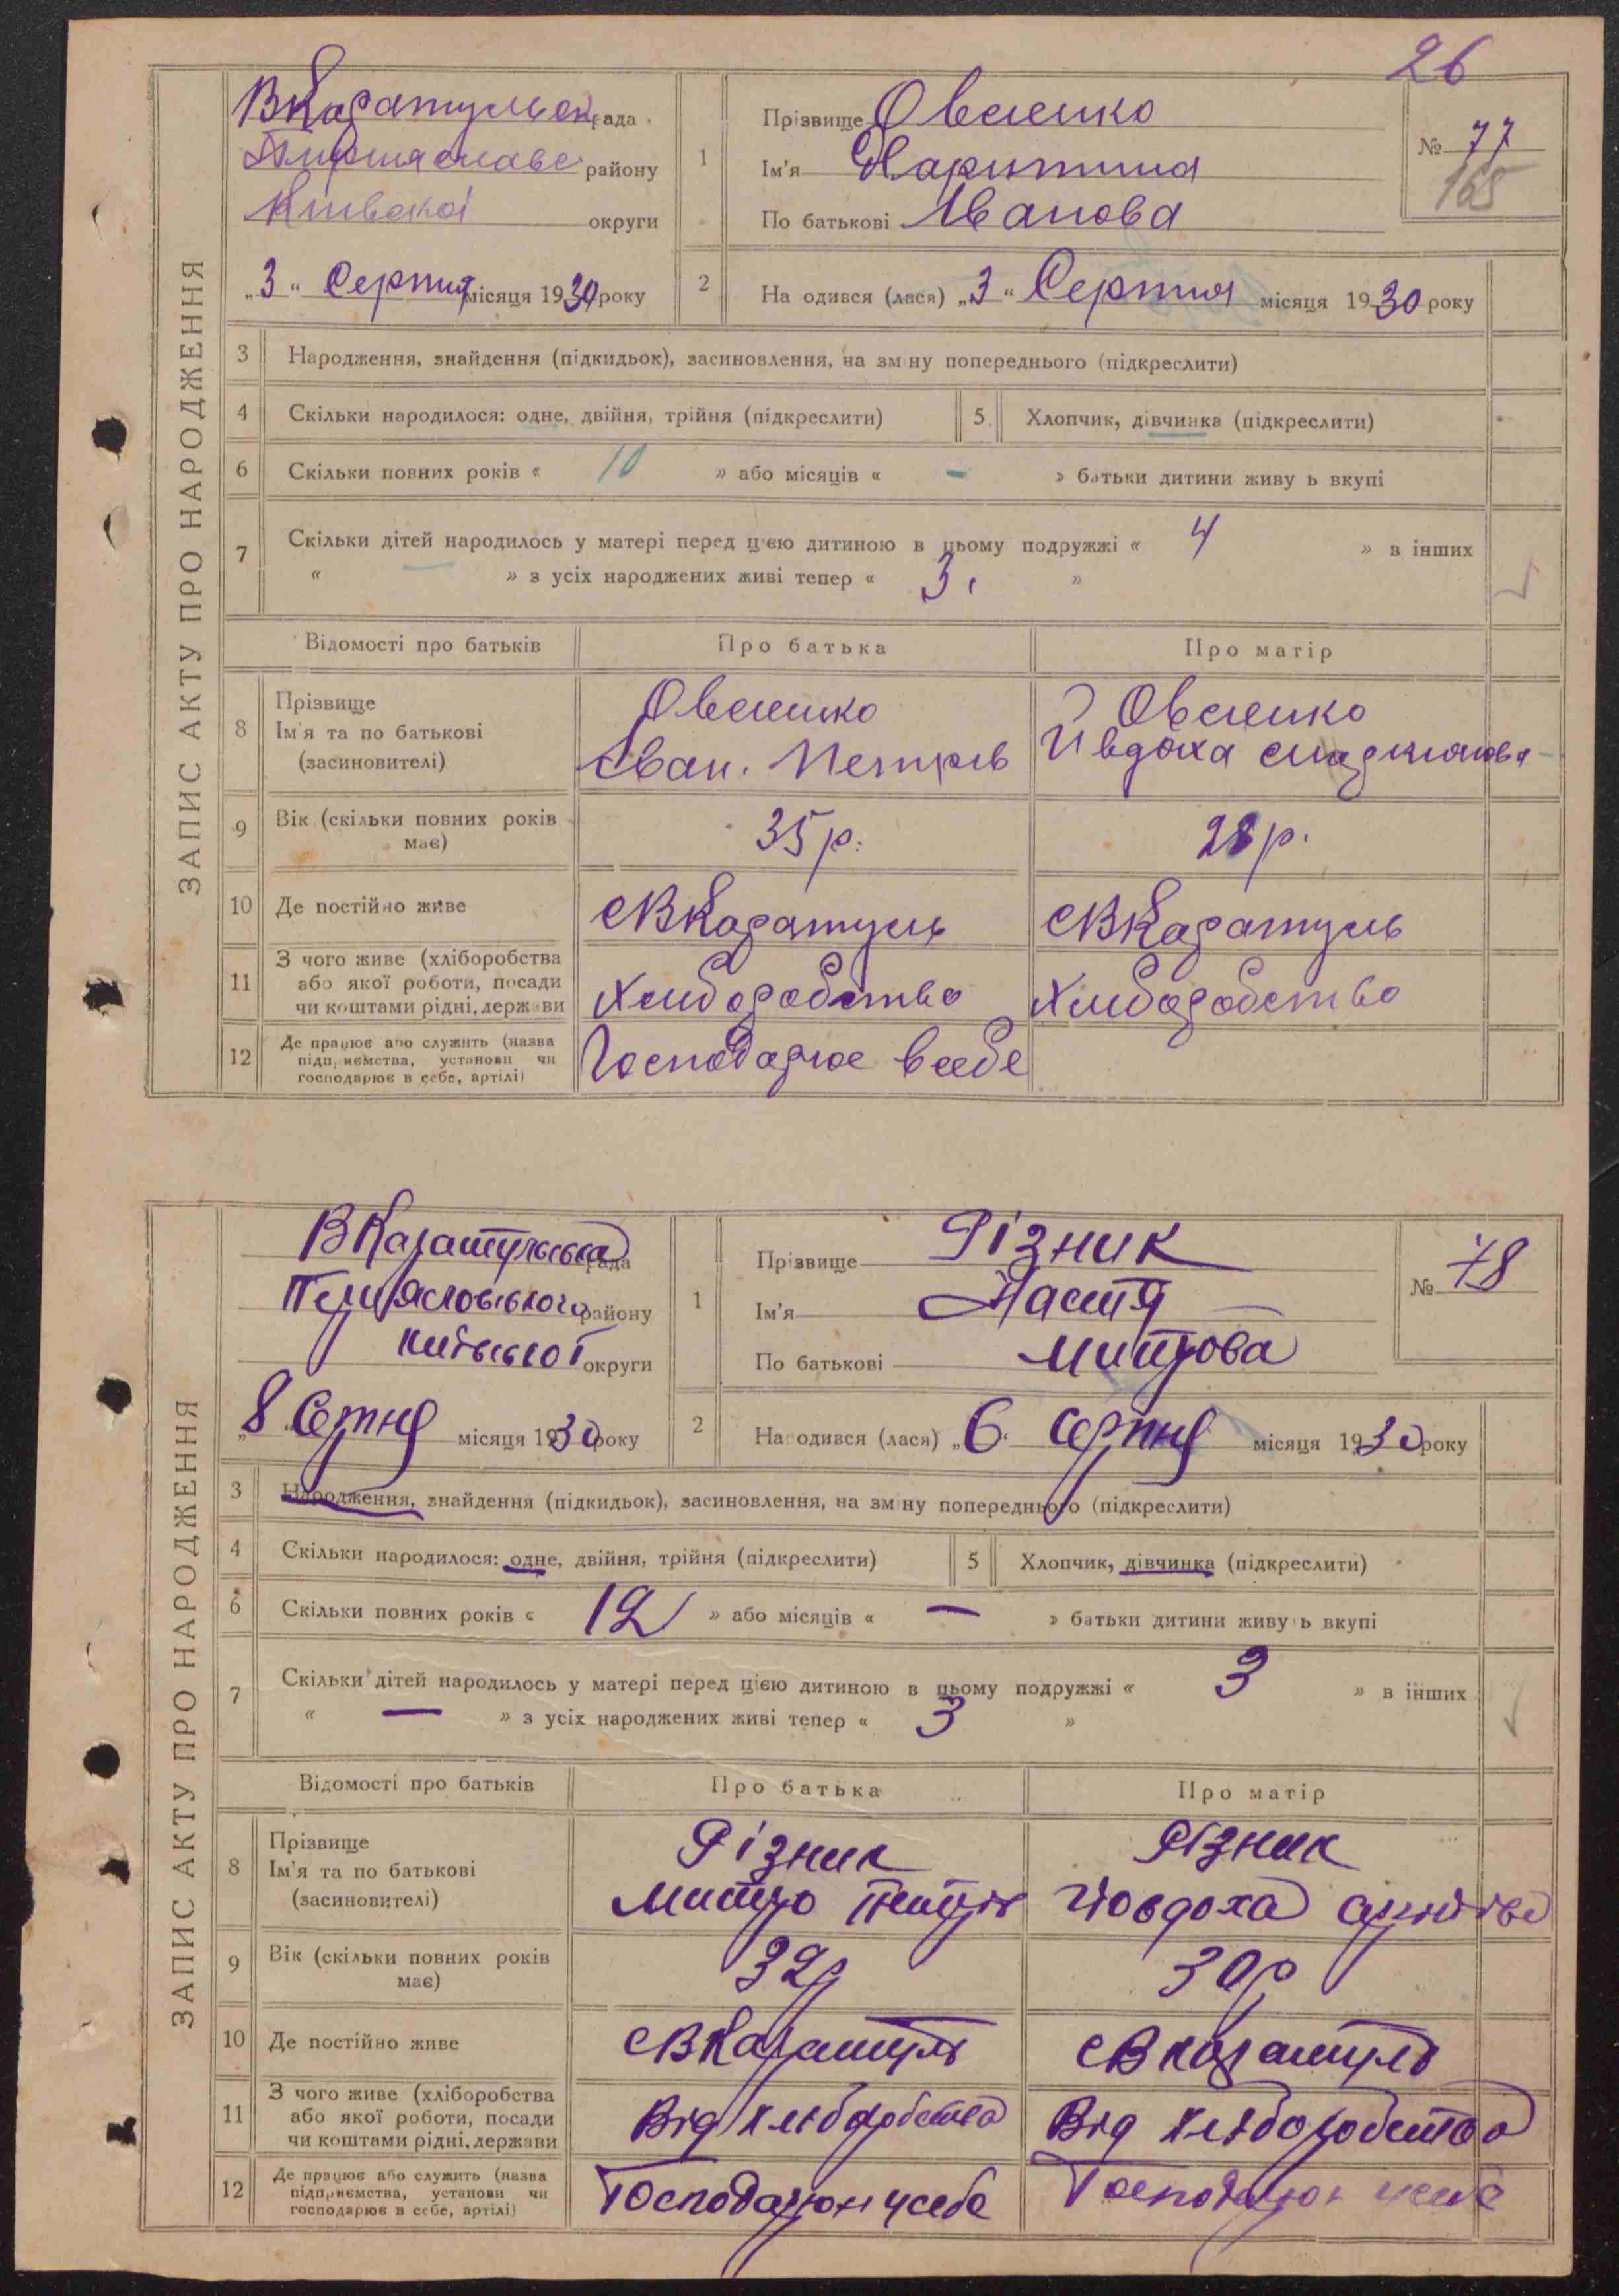 26
ЗАПИС АКТУ ПРО НАРОДЖЕННЯ
ВКаратульск рада
району
Київської округи
„3“ Серпня місяця 1930 року
1
Прізвище Овсіенко
Ім'я Харитина
По батькові Іванова
№ 77
165
2
На одився (лася) „3“ Серпня місяця 1930 року
3 Народження, знайдення (підкидьок), засиновлення, на зм ну попереднього (підкреслити)
4 Скільки народилося: одне, двійня, трійня (підкреслити)
5 Хлопчик, дівчинка (підкреслити)
6 Скільки повних років « 10 » або місяців « - » батьки дитини живу ь вкупі
7 Скільки дітей народилось у матері перед цією дитиною в цьому подружжі « 4 » в інших
« — » з усіх народжених живі тепер « 3. »
Відомості про батьків Про батька Про матір
8 Прізвище
Ім'я та по батькові
(засиновителі)
Овсіенко
Іван. Петрів
Овсіенко
Ивдоха
9 Вік (скільки повних років
має)
35 р.
28 р.
10 Де постійно живе
сВКаратуль
сВКаратуль
11 З чого живе (хліборобства
або якої роботи, посади
чи коштами рідні, держави
Хліборобство
Хліборобство
12 Де працює або служить (назва
підприємства, установи чи
господарює в себе, артілі)
Господарює всебе
ЗАПИС АКТУ ПРО НАРОДЖЕННЯ
ВКаратульська рада
Переясловського району
Київської округи
„8 Серпня місяця 1930 року
1
Прізвище Різник
Ім'я Настя
По батькові Митрова
№ 78
2
На одився (лася) „6“ Серпня місяця 1930 року
3 Народження, знайдення (підкидьок), засиновлення, на зм ну попереднього (підкреслити)
4 Скільки народилося: одне, двійня, трійня (підкреслити)
5 Хлопчик, дівчинка (підкреслити)
6 Скільки повних років « 12 » або місяців « — » батьки дитини живу ь вкупі
7 Скільки дітей народилось у матері перед цією дитиною в цьому подружжі « 3 » в інших
« — » з усіх народжених живі тепер « 3 »
Відомості про батьків Про батька Про матір
8 Прізвище
Ім'я та по батькові
(засиновителі)
Різник
Митро Петрів
Різник
Йовдоха
9 Вік (скільки повних років
має)
32 р
30 р
10 Де постійно живе
сВКаратуль
сВКаратуль
11 З чого живе (хліборобства
або якої роботи, посади
чи коштами рідні, держави
Від хліборобства
Від хліборобства
12 Де працює або служить (назва
підприємства, установи чи
господарює в себе, артілі)
Господарює усебе
Господарює усебе